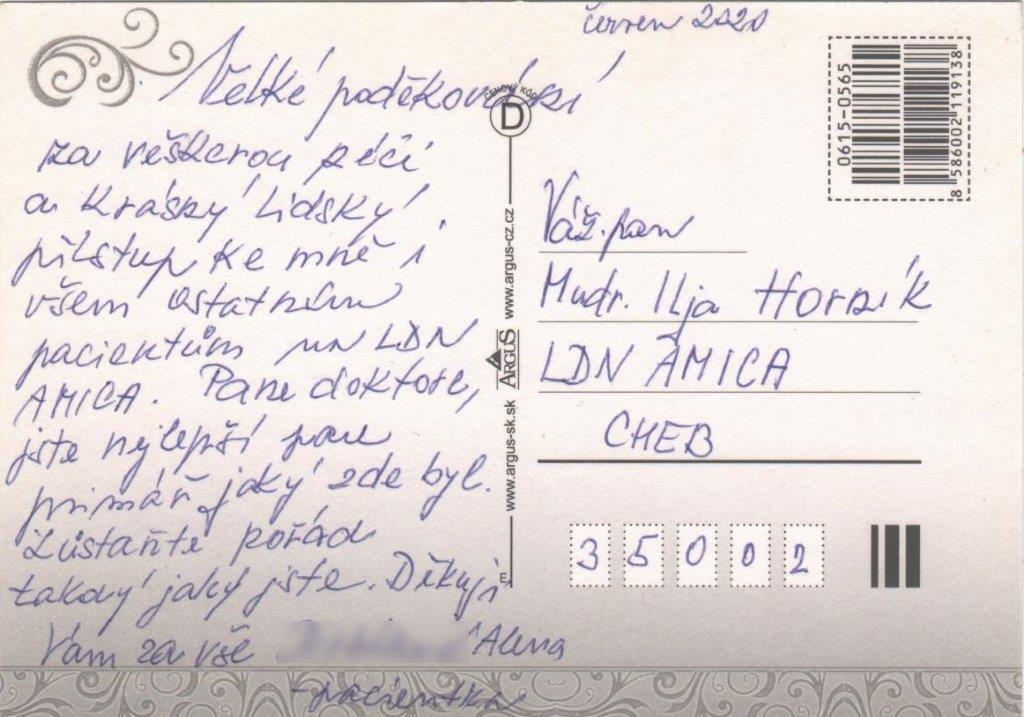 červen 2020
Velké poděkování
za veškerou péči
a krásný lidský
přístup ke mně i
všem ostatním
pacientům na LDN
AMICA. Pane doktore,
jste nejlepší pan
primář jaký zde byl.
Zůstaňte pořád
takový jaký jste. Děkuji
Vám za vše Alena
- pacientka
CENOVÝ KÓD
D
www.argus-cz.cz
ARGUS
www.argus-sk.sk
E
0615-0565
8 586002 119138
Váž. pan
Mudr. Ilja Horník
LDN AMICA
CHEB
35002